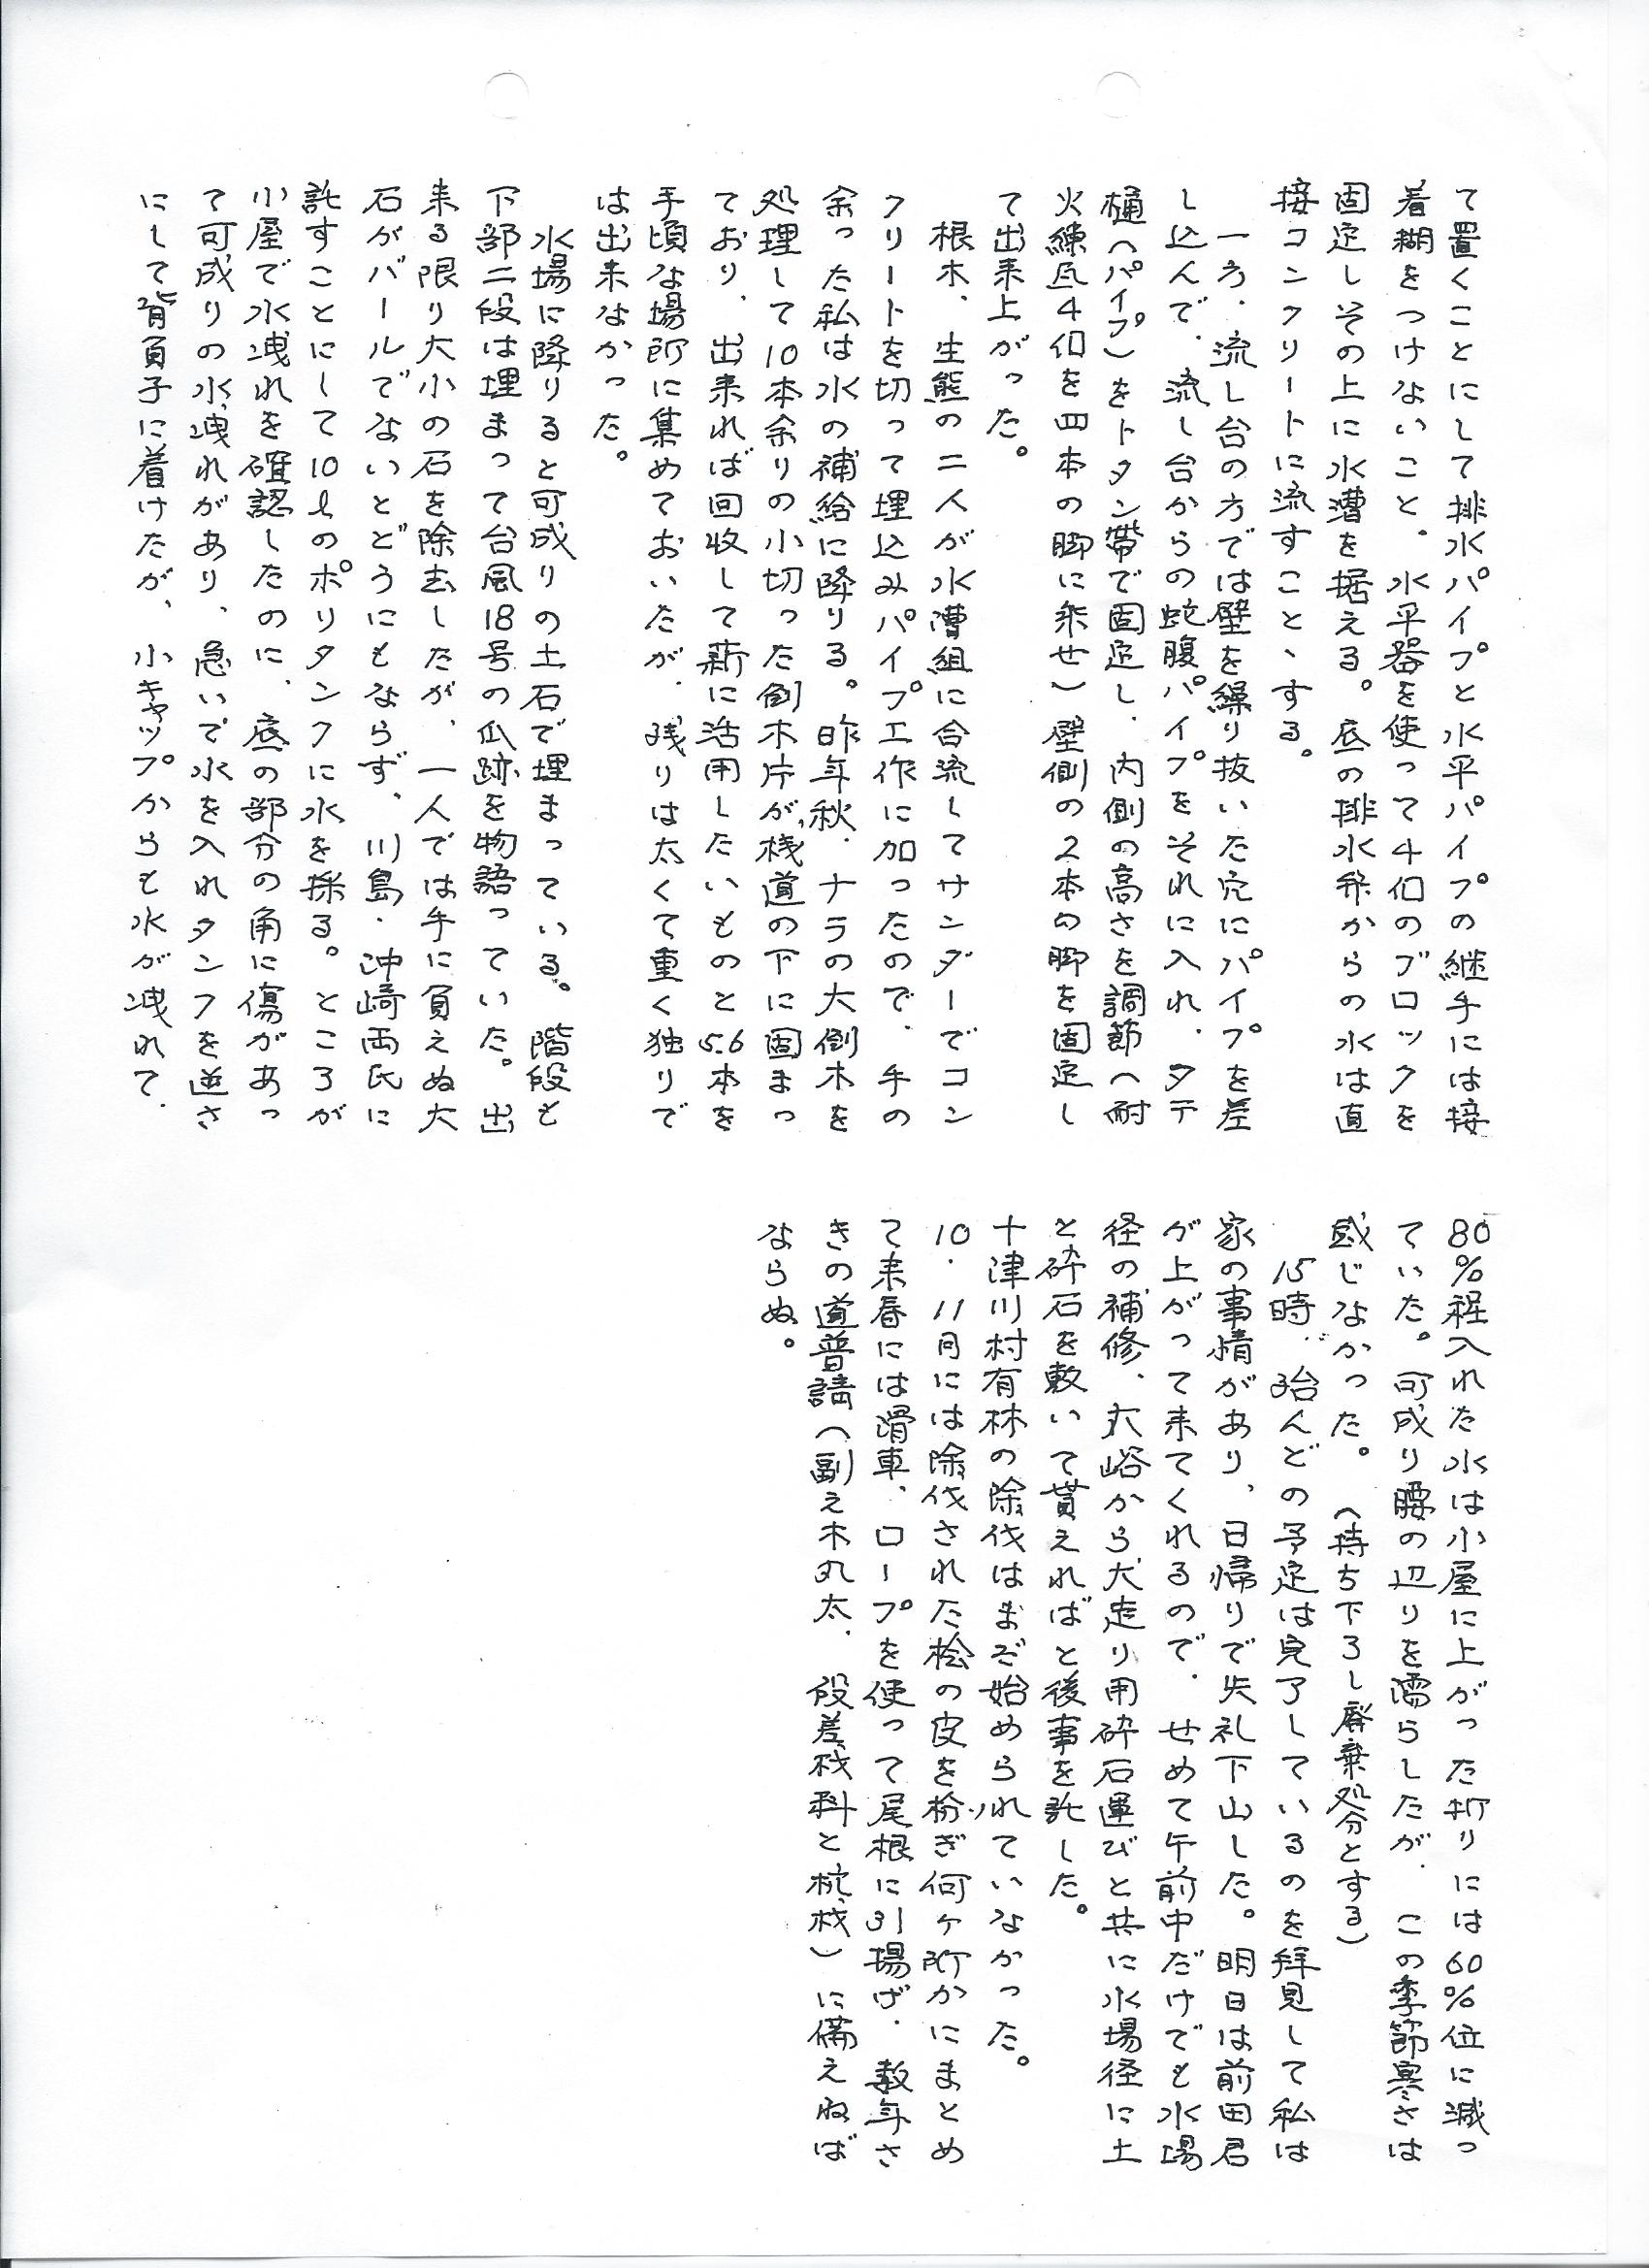 て置くことにして排水パイプと水平パイプの継手には接
着糊をつけないこと。水平器を使って4個のブロックを
固定しその上に水漕を据える。底の排水栓からの水は直
接コンクリートに流すこと、する。
一方、流し台の方では壁を繰り抜いた穴にパイプを差
し込んで、流し台からの蛇腹パイプをそれに入れ、タテ
樋(パイプ)をトタン帯で固定し、内側の高さを調節(耐
火練瓦4個を四本の脚に乗せ)壁側の2本の脚を固定し
て出来上がった。
根木、生熊の二人が水漕組に合流してサンダーでコン
クリートを切って埋込みパイプ工作に加ったので、手の
余った私は水の補給に降りる。昨年秋、ナラの大倒木を
処理して10本余りの小切った倒木片が、桟道の下に固まっ
ており、出来れば回収して薪に活用したいものと5.6本を
手頃な場所に集めておいたが、残りは太くて重く独りで
は出来なかった。
水場に降りると可成りの土石で埋まっている。階段も
下部二段は埋まって台風18号の爪跡を物語っていた。出
来る限り大小の石を除去したが、一人では手に負えぬ大
石がバールでないとどうにもならず、川島・沖崎両氏に
託すことにして10ℓのポリタンクに水を採る。ところが
小屋で水洩れを確認したのに、底の部分の角に傷があっ
て可成りの水洩れがあり、急いで水を入れタンクを逆さ
にして背負子に着けたが、小キャップからも水が洩れて、
80%程入れた水は小屋に上がった折りには60%位に減っ
ていた。可成り腰の辺りを濡らしたが、この季節寒さは
感じなかった。(持ち下ろし廃棄処分とする)
15時、殆んどの予定は完了しているのを拝見して私は
家の事情があり、日帰りで失礼下山した。明日は前田君
が上がって来てくれるので、せめて午前中だけでも水場
径の補修、大峪から犬走り用砕石運びと共に水場径に土
と砕石を敷いて貰えればと後事を託した。
十津川村有林の除伐はまだ始められていなかった。
10、11月には除伐された桧の皮を枌ぎ何ヶ所かにまとめ
て来春には滑車、ロープを使って尾根に引揚げ、数年さ
きの道普請(副え木丸太、段差材料と杭材)に備えねば
ならぬ。